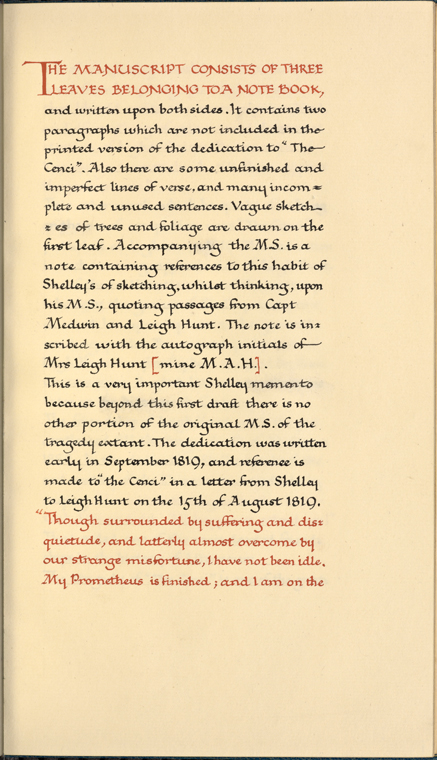 THE MANUSCRIPT CONSISTS OF THREE
LEAVES BELONGING TO A NOTE BOOK,
and written upon both sides. It contains two
paragraphs which are not included in the
printed version of the dedication to "The
Cenci". Also there are some unfinished and
imperfect lines of verse, and many incom=
plete and unused sentences. Vague sketch
= es of trees and foliage are drawn on the
first leaf. Accompanying the M.S. is a
note containing references to this habit of
Shelley's of sketching, whilst thinking, upon
his M.S., quoting passages from Capt
Medwin and Leigh Hunt. The note is in=
scribed with the autograph initials of
Mrs Leigh Hunt [mine M.A.H.].
This is a very important Shelley memento
because beyond this first draft there is no
other portion of the original M.S. of the
tragedy extant. The dedication was written
early in September 1819, and reference is
made to "the Cenci" in a letter from Shelley
to Leigh Hunt on the 15th of August 1819.
"Though surrounded by suffering and dis=
quietude, and latterly almost overcome by
our strange misfortune, I have not been idle.
My Prometheus is finished; and I am on the